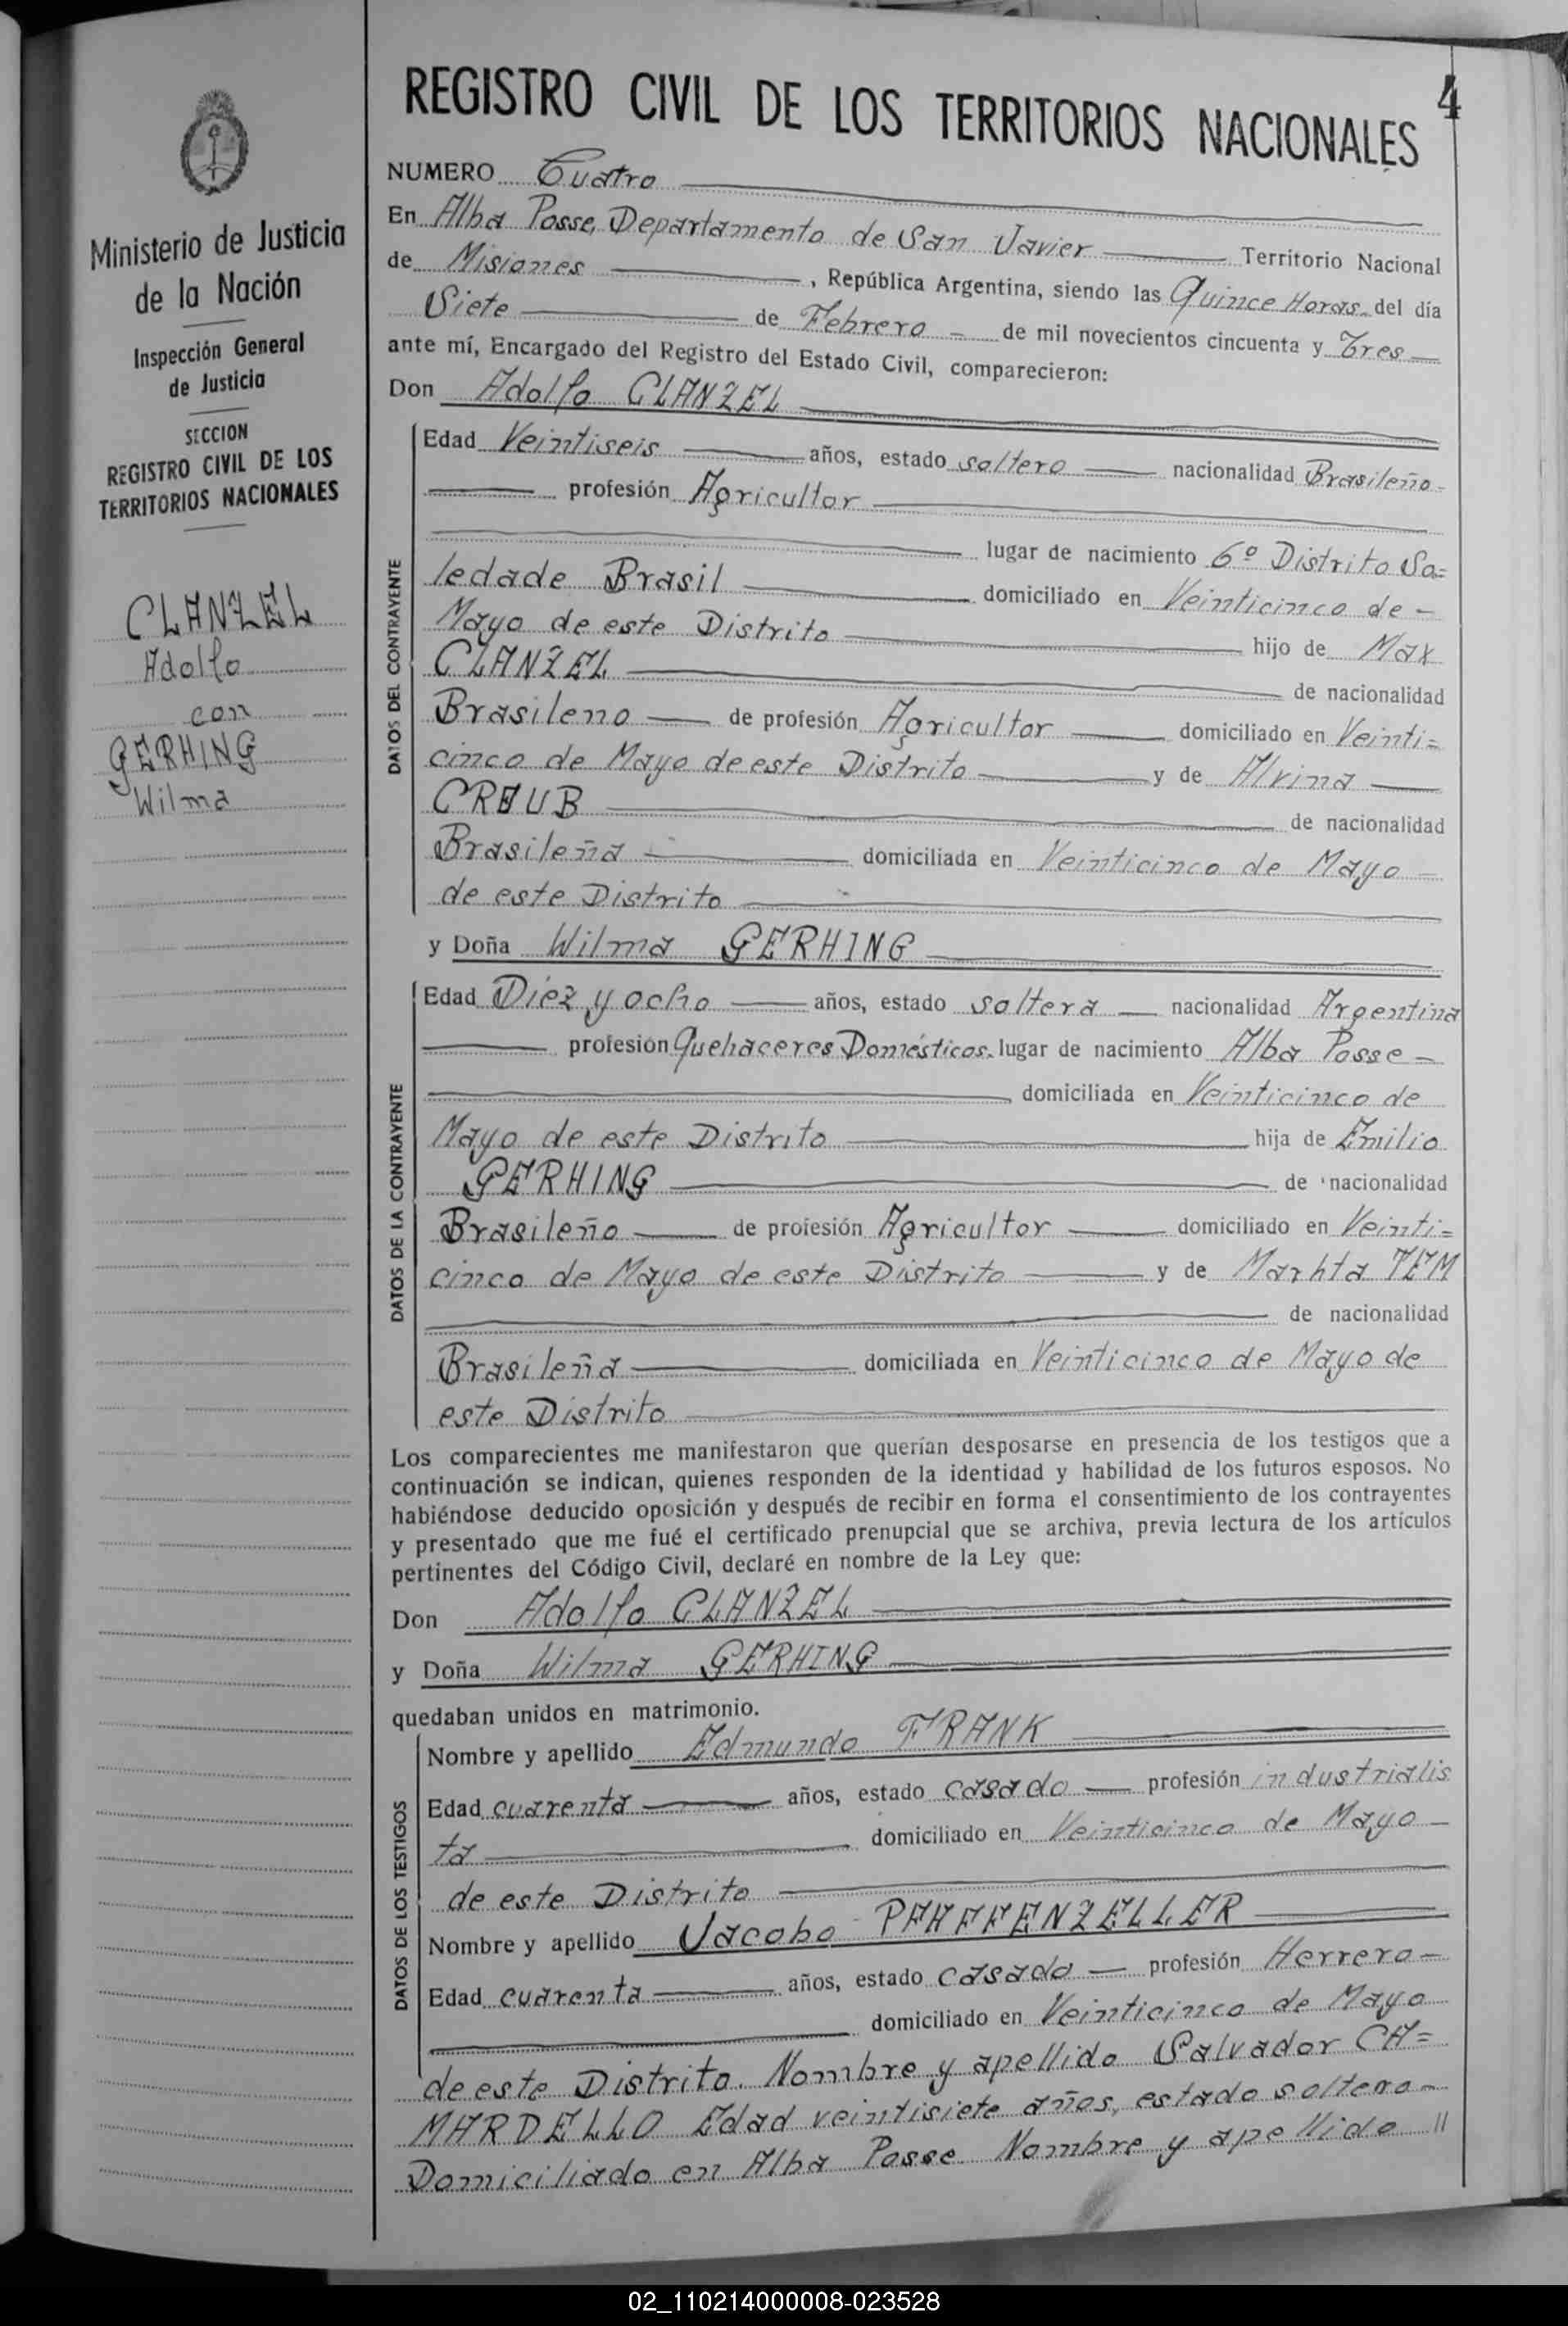 4
REGISTRO CIVIL DE LOS TERRITORIOS NACIONALES
Ministerio de Justicia
de la Nación
Inspección General
de Justicia
SECCION
REGISTRO CIVIL DE LOS
TERRITORIOS NACIONALES
CLANZEL
Adolfo
con
GERHING
Wilma
NUMERO Cuatro
En Alba Posse, Departamento de San Javier Territorio Nacional
de Misiones , República Argentina, siendo las Quince Horas del día
Siete de Febrero de mil novecientos cincuenta y Tres
ante mí, Encargado del Registro del Estado Civil, comparecieron:
Don Adolfo CLANZEL
DATOS DEL CONTRAYENTE
Edad Veintiseis años, estado soltero nacionalidad Brasileño
profesión Agricultor
lugar de nacimiento 6º Distrito So=
ledade Brasil domiciliado en Veinticinco de
Mayo de este Distrito hijo de Max
CLANZEL de nacionalidad
Brasileno de profesión Agricultor domiciliado en Veinti=
cinco de Mayo de este Distrito y de Alvina
CREUB de nacionalidad
Brasileña domiciliada en Veinticinco de Mayo
de este Distrito
y Doña Wilma GERHING
DATOS DE LA CONTRAYENTE
Edad Diez y ocho años, estado soltera nacionalidad Argentina
profesión Quehaceres Domésticos. lugar de nacimiento Alba Posse
domiciliada en Veinticinco de
Mayo de este Distrito hija de Emilio
GERHING de nacionalidad
Brasileño de profesión Agricultor domiciliado en Veinti=
cinco de Mayo de este Distrito y de Marhta TEM
de nacionalidad
Brasileña domiciliada en Veinticinco de Mayo de
este Distrito
Los comparecientes me manifestaron que querían desposarse en presencia de los testigos que a
continuación se indican, quienes responden de la identidad y habilidad de los futuros esposos. No
habiéndose deducido oposición y después de recibir en forma el consentimiento de los contrayentes
y presentado que me fué el certificado prenupcial que se archiva, previa lectura de los artículos
pertinentes del Código Civil, declaré en nombre de la Ley que:
Don Adolfo CLANZEL
y Doña Wilma GERHING
quedaban unidos en matrimonio.
DATOS DE LOS TESTIGOS
Nombre y apellido Edmundo FRANK
Edad cuarenta años, estado casado profesión industrialis
ta domiciliado en Veinticinco de Mayo
de este Distrito
Nombre y apellido Jacobo PFAFFENZELLER
Edad cuarenta años, estado casado profesión Herrero
domiciliado en Veinticinco de Mayo
de este Distrito. Nombre y apellido Salvador CA=
MARDELLO Edad veintisiete años, estado soltero
Domiciliado en Alba Posse Nombre y apellido //
02_110214000008-023528